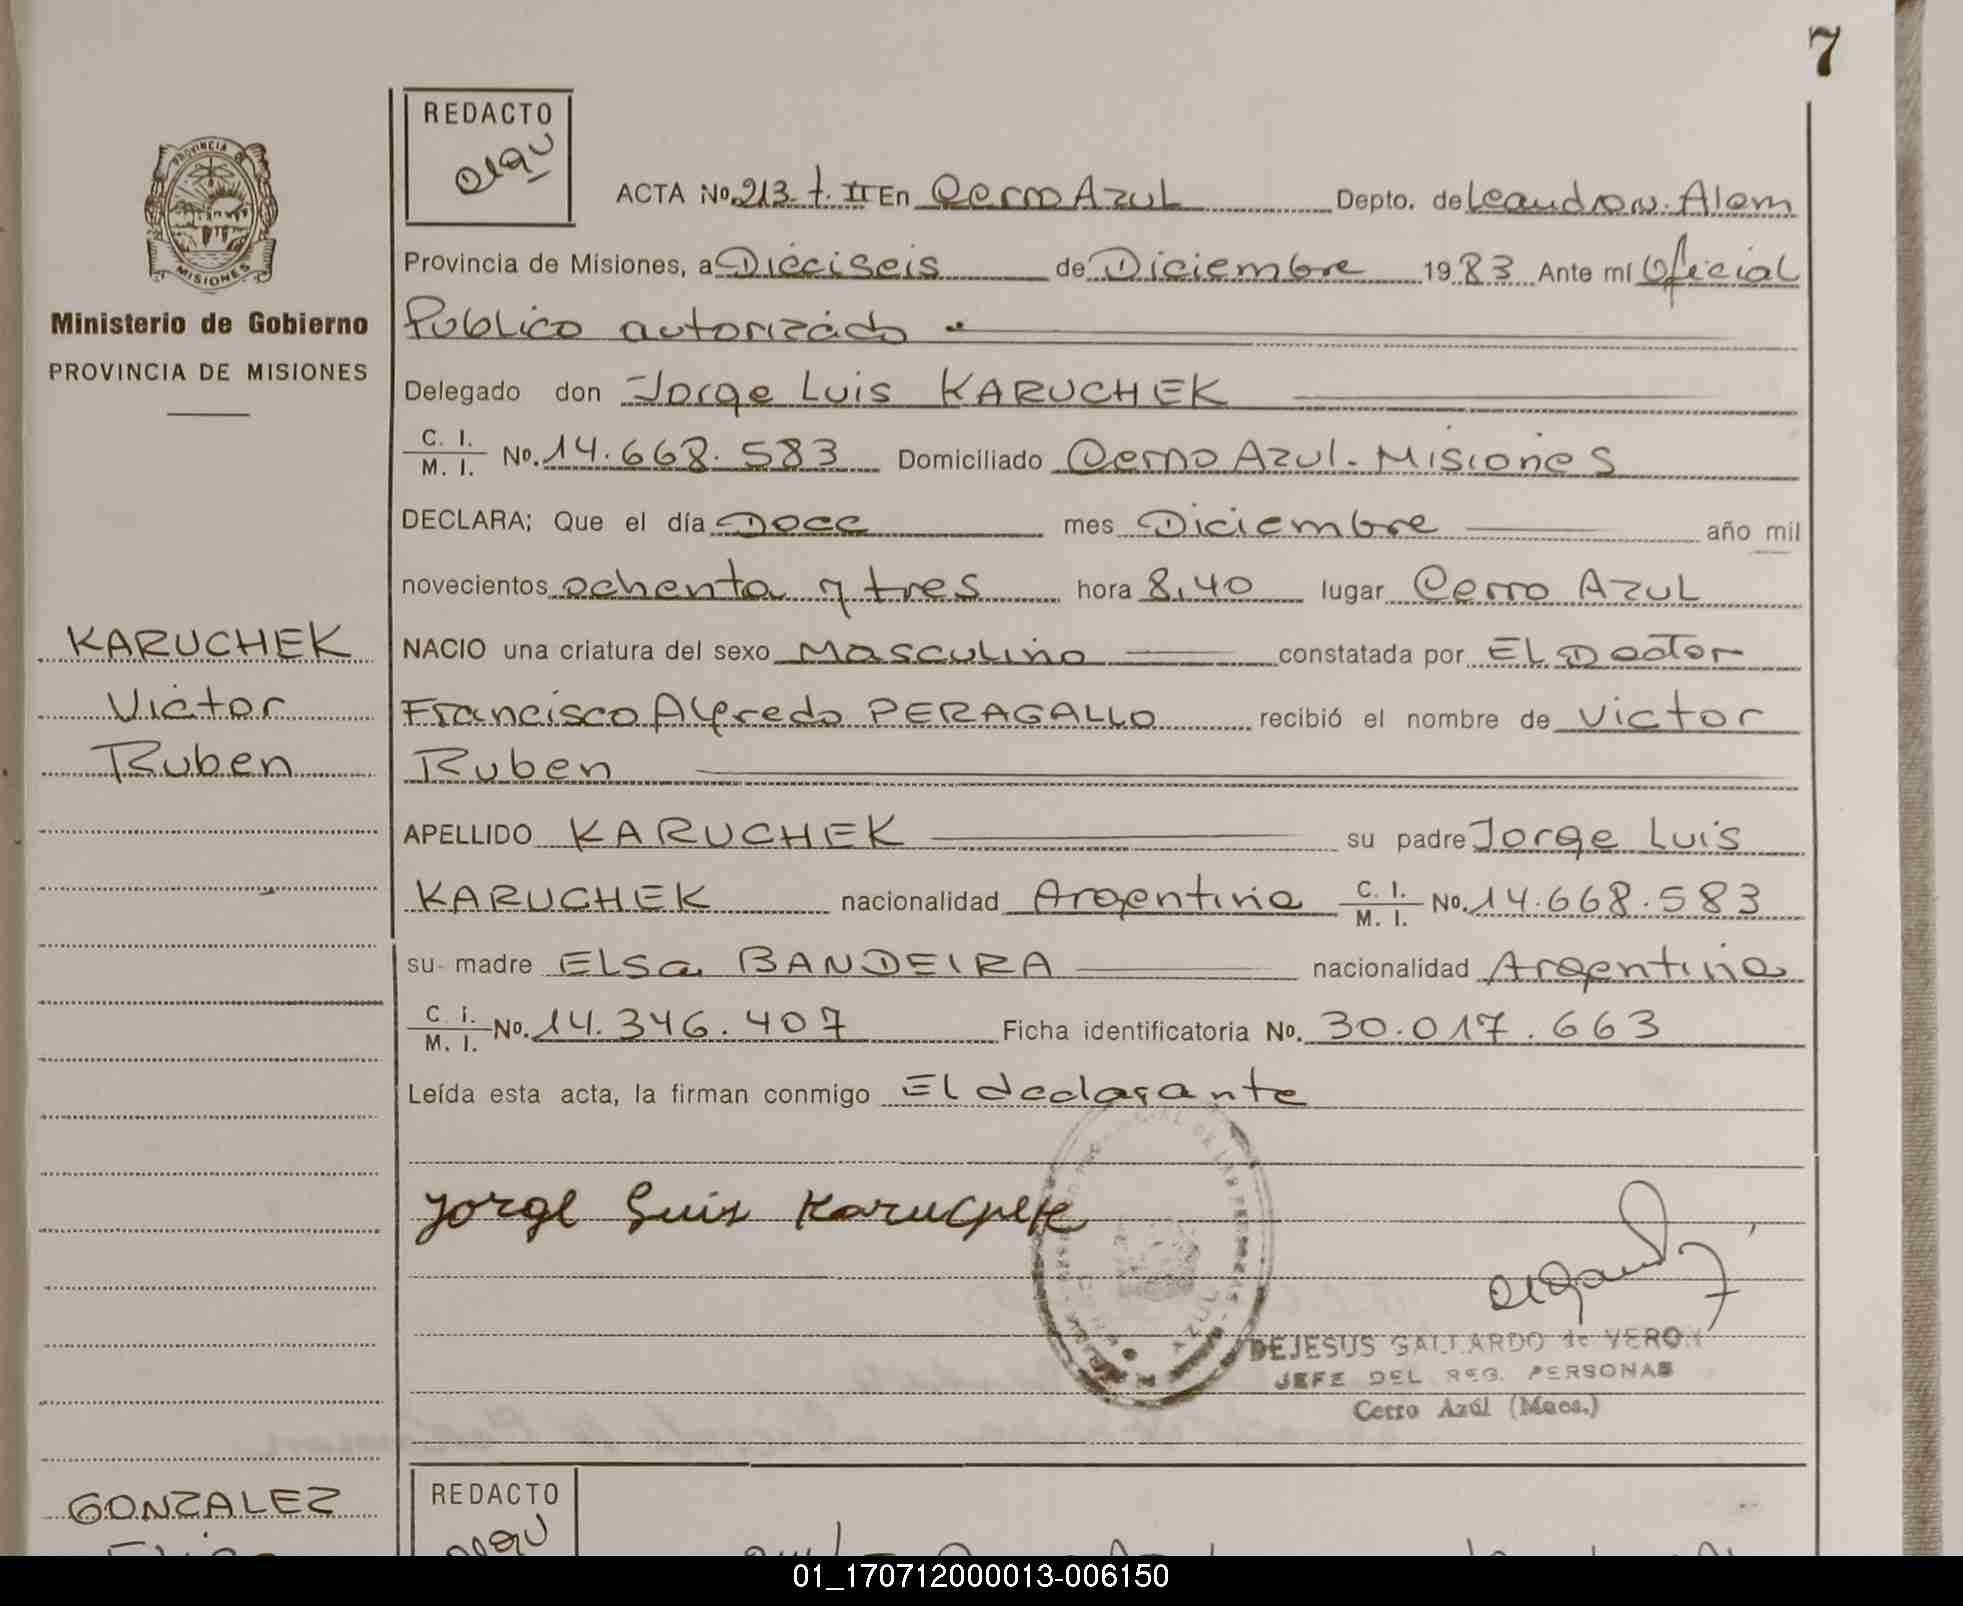 7
REDACTO
ACTA No. 213 t. II En Cerro Azul Depto. de Leandro N. Alem
Provincia de Misiones, a Dieciseis de Diciembre 1983 Ante mí Oficial
Publico autorizado
Delegado don Jorge Luis KARUCHEK
C. I. / M. I. No. 14.668.583 Domiciliado Cerro Azul - Misiones
DECLARA; Que el día Doce mes Diciembre año mil
novecientos ochenta y tres hora 8,40 lugar Cerro Azul
NACIO una criatura del sexo Masculino constatada por El Doctor
Francisco Alfredo PERAGALLO recibió el nombre de Victor
Ruben
APELLIDO KARUCHEK su padre Jorge Luis
KARUCHEK nacionalidad Argentina C. I. / M. I. No. 14.668.583
su madre Elsa BANDEIRA nacionalidad Argentina
C. I. / M. I. No. 14.346.407 Ficha identificatoria No. 30.017.663
Leída esta acta, la firman conmigo El declarante
Jorge Luis Karuchek
DEJESUS GALLARDO de VERON
JEFE DEL REG. PERSONAS
Cerro Azúl (Mnes.)
PROVINCIA DE
MISIONES
Ministerio de Gobierno
PROVINCIA DE MISIONES
KARUCHEK
Victor
Ruben
GONZALEZ
REDACTO
01_170712000013-006150